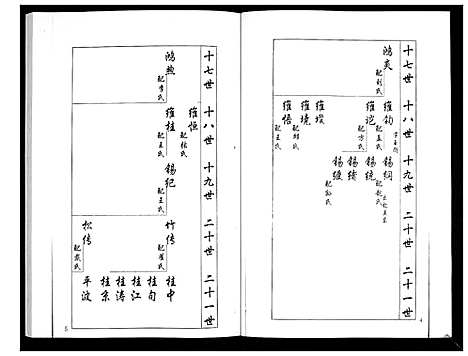 十七世 十八世 十九世 二十世 二十一世
鸿炎
配刘氏
维钧
配孟氏
维试
配方氏
维璞
维境
配邢氏
维悟
配王氏
锡纲
配乾氏
锡统
锡绪
锡缓
配孙氏
4
十七世 十八世 十九世 二十世 二十一世
鸿煦
配李氏
维恒
配信氏
维桂
配王氏
锡纪
配王氏
竹传
配崔氏
松传
配戴氏
桂中
桂旬
桂江
桂涛
桂京
平波
5